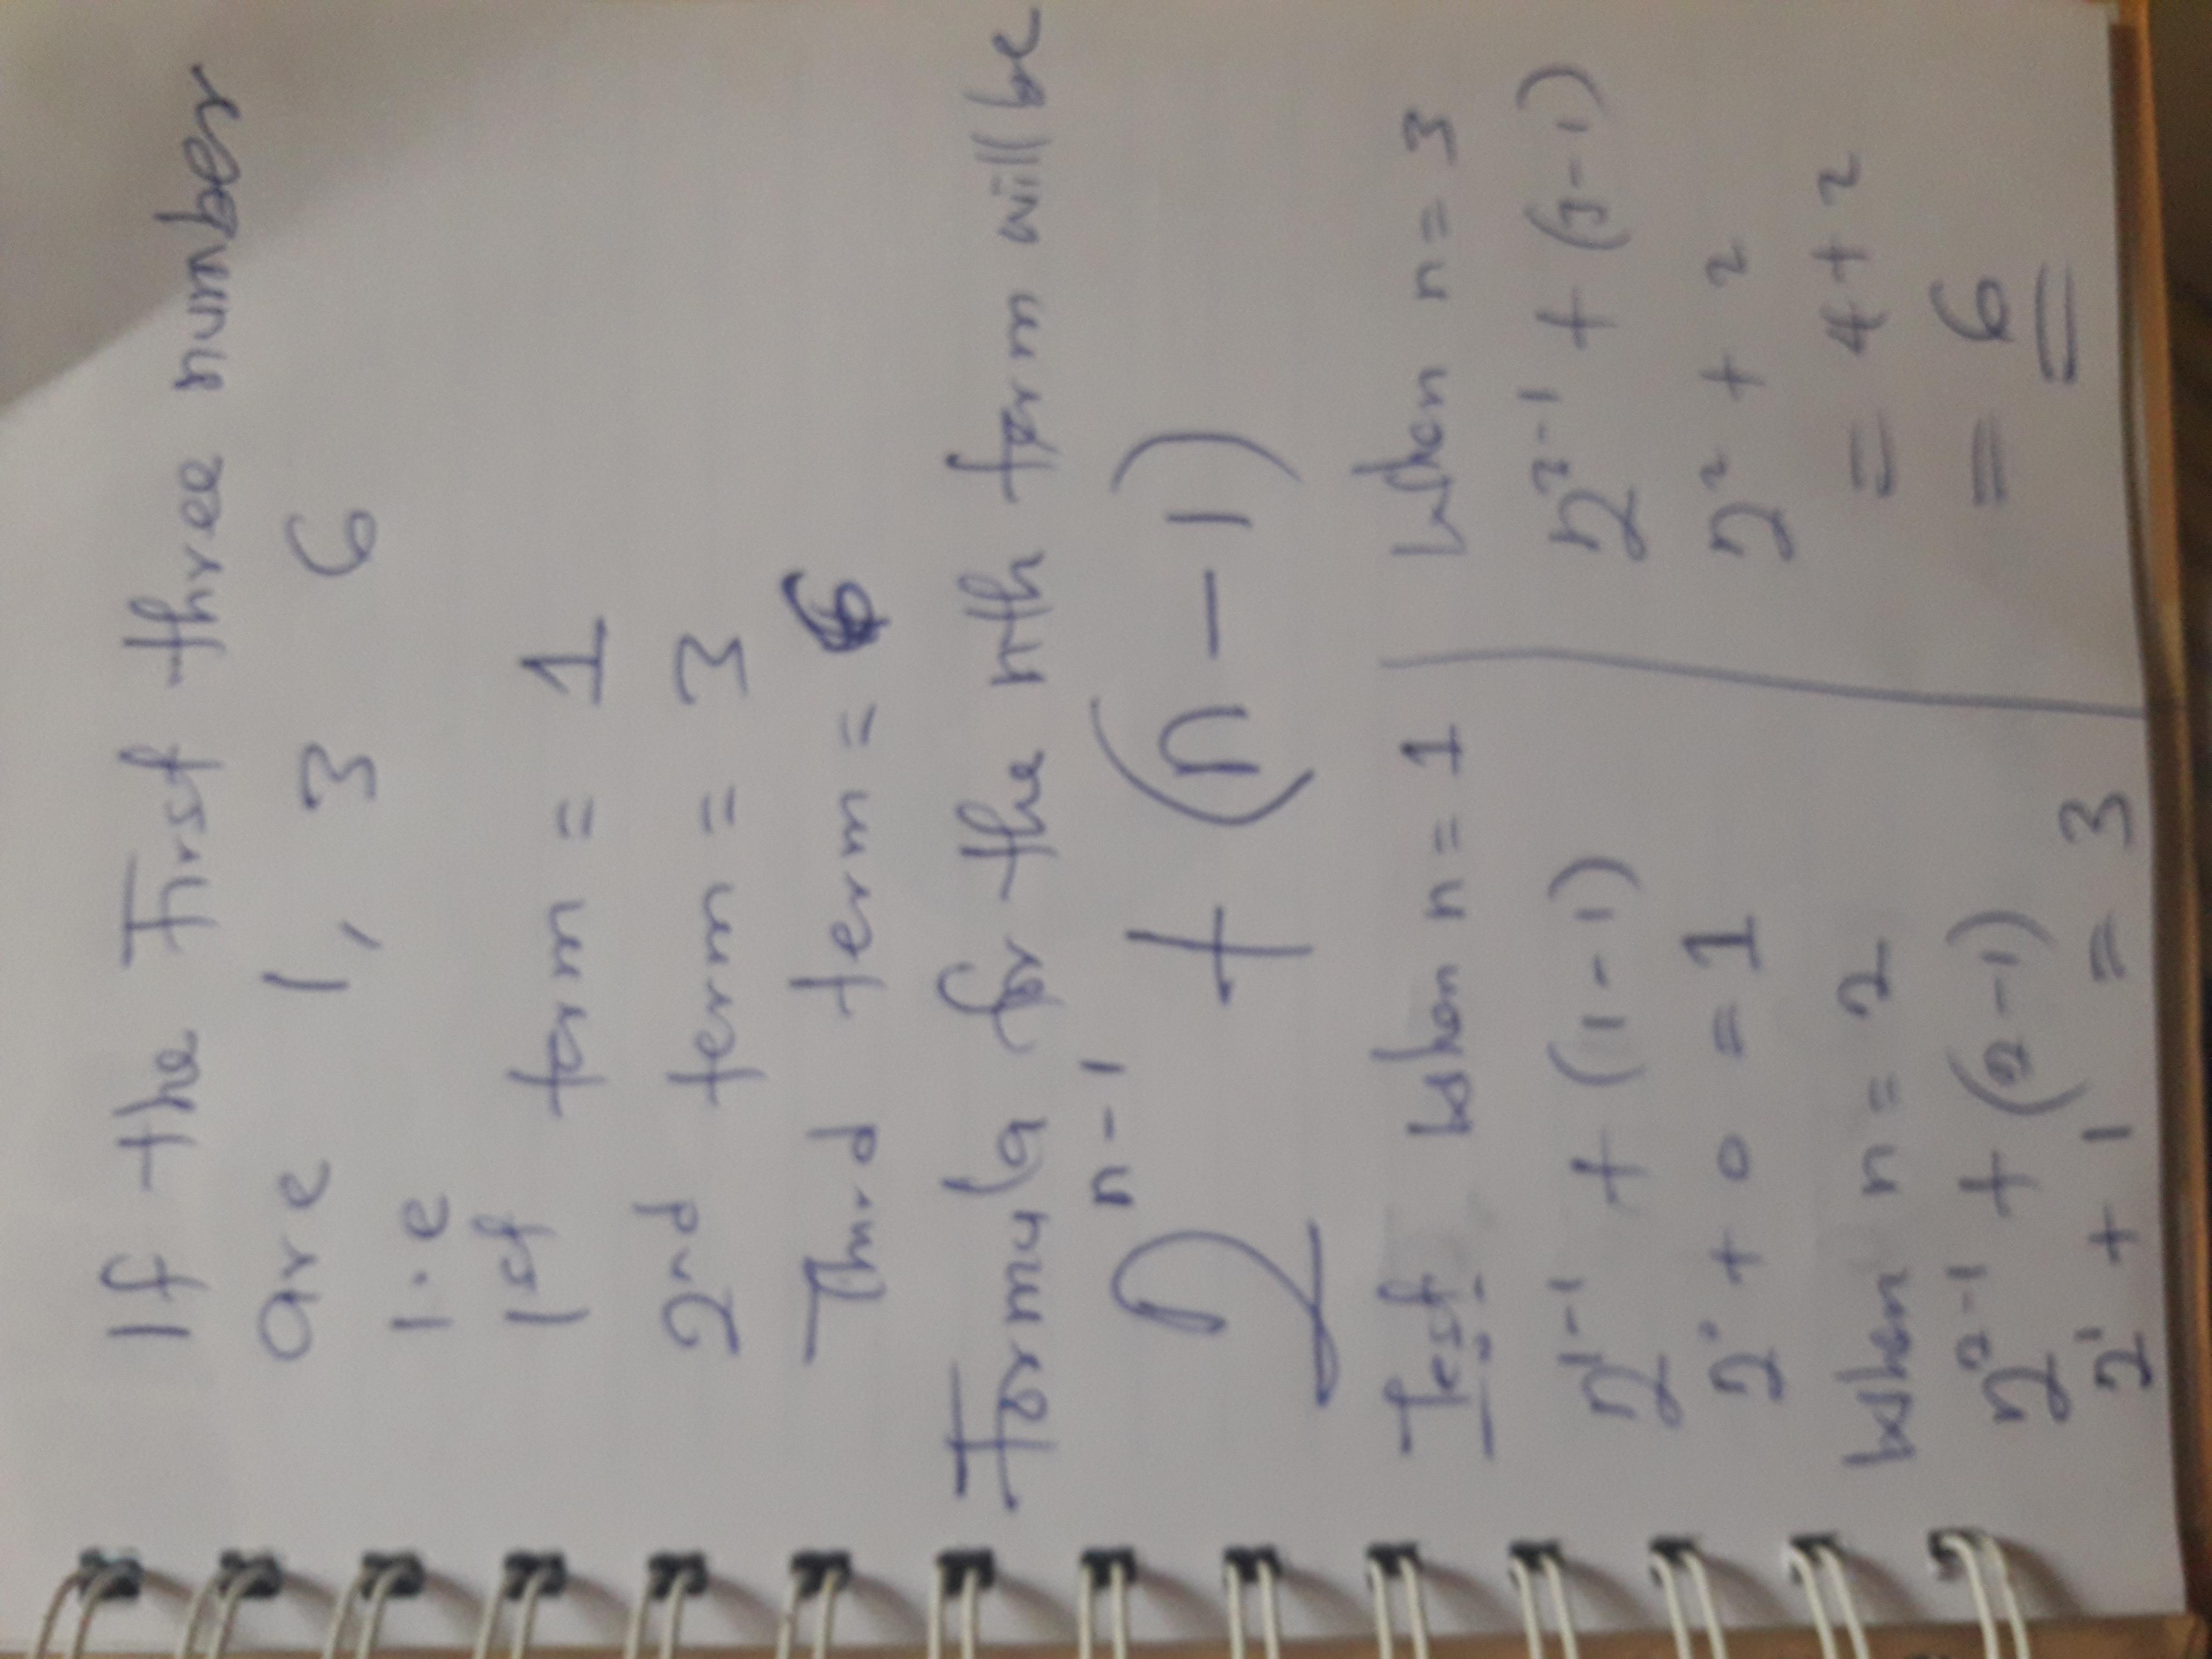 If the First three number
are 1, 3 6
i.e
1st term = 1
2nd term = 3
Third term = 6
Formula for the nth term will be
2ⁿ⁻¹ + (n - 1)
Test when n = 1
2¹⁻¹ + (1 - 1)
2⁰ + 0 = 1
when n = 2
2²⁻¹ + (2 - 1)
2¹ + 1 = 3
When n = 3
2³⁻¹ + (3 - 1)
2² + 2
= 4 + 2
= 6